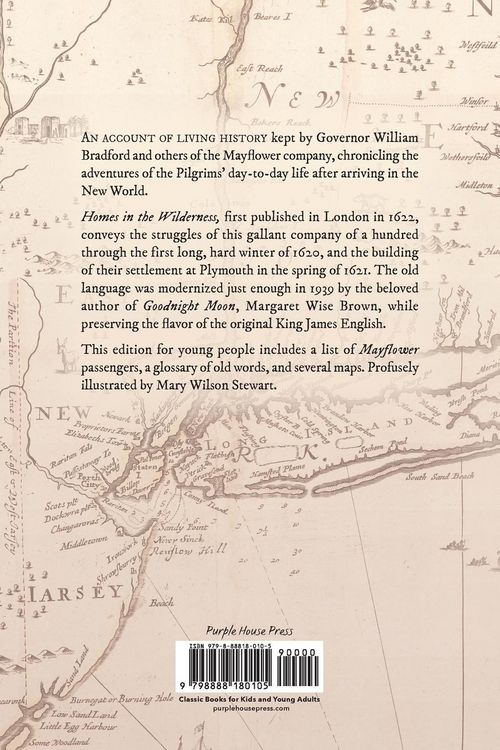 Kates Kil
Beares I
East Reach
NEW
Bakers Reach
Weſtfeild
Winſor
Hartford
Wethersfeild
Midleton
AN ACCOUNT OF LIVING HISTORY kept by Governor William
Bradford and others of the Mayflower company, chronicling the
adventures of the Pilgrims' day-to-day life after arriving in the
New World.
Homes in the Wilderness, first published in London in 1622,
conveys the struggles of this gallant company of a hundred
through the first long, hard winter of 1620, and the building
of their settlement at Plymouth in the spring of 1621. The old
language was modernized just enough in 1939 by the beloved
author of Goodnight Moon, Margaret Wise Brown, while
preserving the flavor of the original King James English.
This edition for young people includes a list of Mayflower
passengers, a glossary of old words, and several maps. Profusely
illustrated by Mary Wilson Stewart.
NEW
LONG ISLAND
Hamsted Plains
South Sand Beach
Scots plt
Middletown
Sandy Point
IARSEY
Beach
Sand Land
Burnegat or Burning Hole
Low Sand Land
Little Egg Harbour
Some Woodland
Purple House Press
ISBN 979-8-88818-010-5
90000
9 798888 180105
Classic Books for Kids and Young Adults
purplehousepress.com